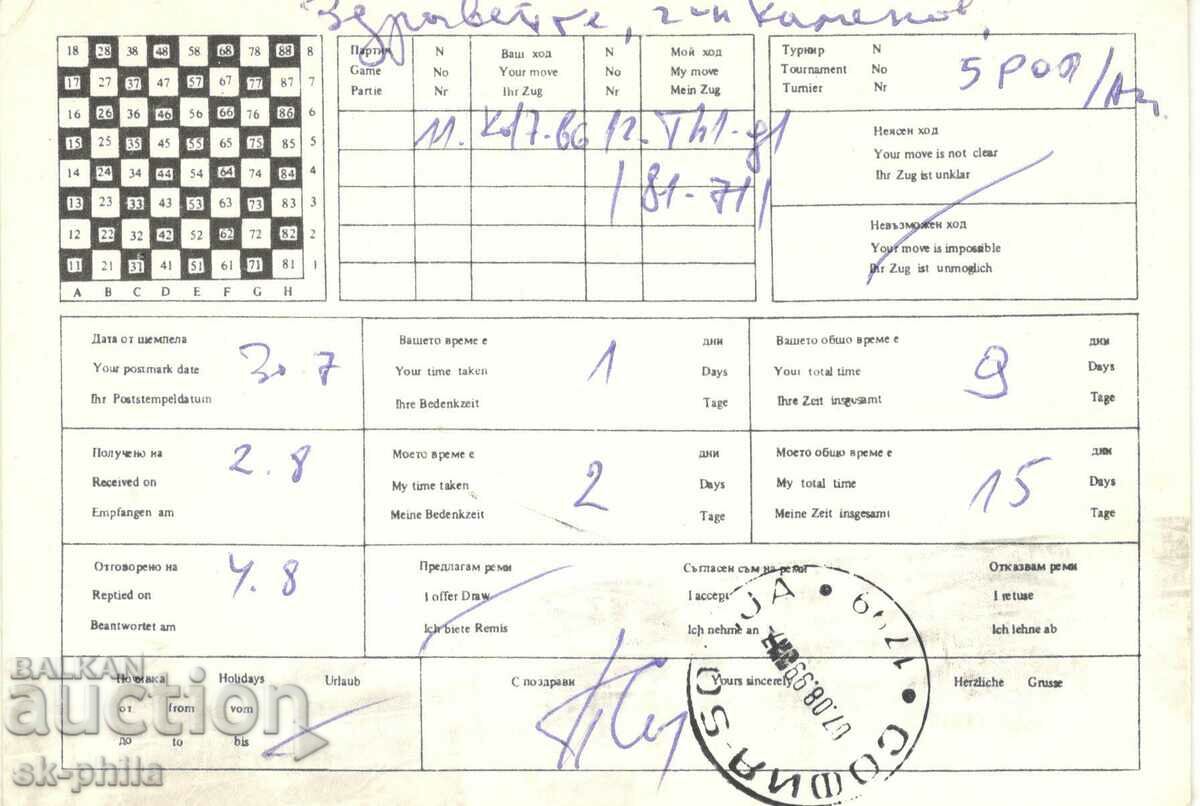 Здравейте, г-н Каменов,
18 28 38 48 58 68 78 88 8
17 27 37 47 57 67 77 87 7
16 26 36 46 56 66 76 86 6
15 25 35 45 55 65 75 85 5
14 24 34 44 54 64 74 84 4
13 23 33 43 53 63 73 83 3
12 22 32 42 52 62 72 82 2
11 21 31 41 51 61 71 81 1
A B C D E F G H
Партия N Ваш ход N Мой ход
Game No Your move No My move
Partie Nr Ihr Zug Nr Mein Zug
11. 12. Th1-g1
/81-71/
Турнир N
Tournament No
Turnier Nr
5 РОЯ/
Неясен ход
Your move is not clear
Ihr Zug ist unklar
Невъзможен ход
Your move is impossible
Ihr Zug ist unmoglich
Дата от щемпела
Your postmark date
Ihr Poststempeldatum
30.7
Вашето време е дни
Your time taken 1 Days
Ihre Bedenkzeit Tage
Вашето общо време е дни
Your total time 9 Days
Ihre Zeit insgesamt Tage
Получено на
Received on 2.8
Empfangen am
Моето време е дни
My time taken 2 Days
Meine Bedenkzeit Tage
Моето общо време е дни
My total time 15 Days
Meine Zeit insgesamt Tage
Отговорено на
Reptied on 4.8
Beantwortet am
Предлагам реми Съгласен съм на реми Отказвам реми
I offer Draw I accept I retuse
Ich biete Remis Ich nehme an Ich lehne ab
Почивка Holidays Urlaub
от from vom
до to bis
С поздрави Yours sincerely Herzliche Grusse
СОФИЯ-SO JA 1799
07.08.99
BALKAN
auction
sk-phila